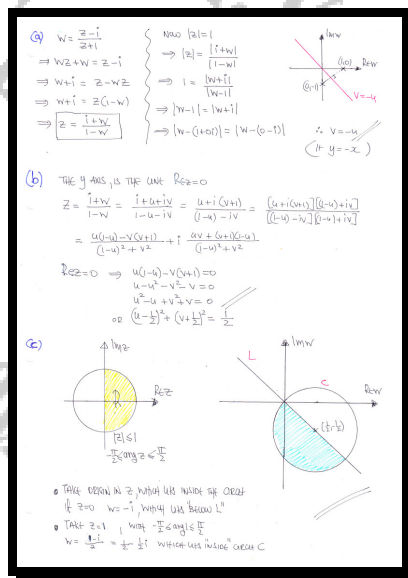 (a) w = (z-i)/(z+1)
⇒ wz+w = z-i
⇒ w+i = z-wz
⇒ w+i = z(1-w)
⇒ z = (i+w)/(1-w)
Now |z|=1
⇒ |z| = |i+w|/|1-w|
⇒ 1 = |w+i|/|w-1|
⇒ |w-1| = |w+i|
⇒ |w-(1+0i)| = |w-(0-i)|
Imw
(1,0)
Rew
(0,-1)
V=-u
∴ V=-u
(If y=-x)
(b) THE y AXIS, IS THE LINE Rez=0
z = (i+w)/(1-w) = (i+u+iv)/(1-u-iv) = (u+i(v+1))/((1-u)-iv) = [u+i(v+1)][(1-u)+iv]/[(1-u)-iv][(1-u)+iv]
= (u(1-u)-v(v+1))/((1-u)²+v²) + i (uv+(v+1)(1-u))/((1-u)²+v²)
Rez=0 ⇒ u(1-u)-v(v+1)=0
u-u²-v²-v=0
u²-u+v²+v=0
OR (u-1/2)²+(v+1/2)²=1/2
(c)
Imz
Rez
R
|z|≤1
-π/2≤argz≤π/2
Imw
L
C
Rew
(1/2,-1/2)
• TAKE ORIGIN IN Z, WHICH LIES INSIDE THE CIRCLE
If z=0 w=-i, WHICH LIES "BELOW L"
• TAKE z=1, WITH -π/2≤arg1≤π/2
w = (1-i)/2 = 1/2-1/2i WHICH LIES "INSIDE" CIRCLE C